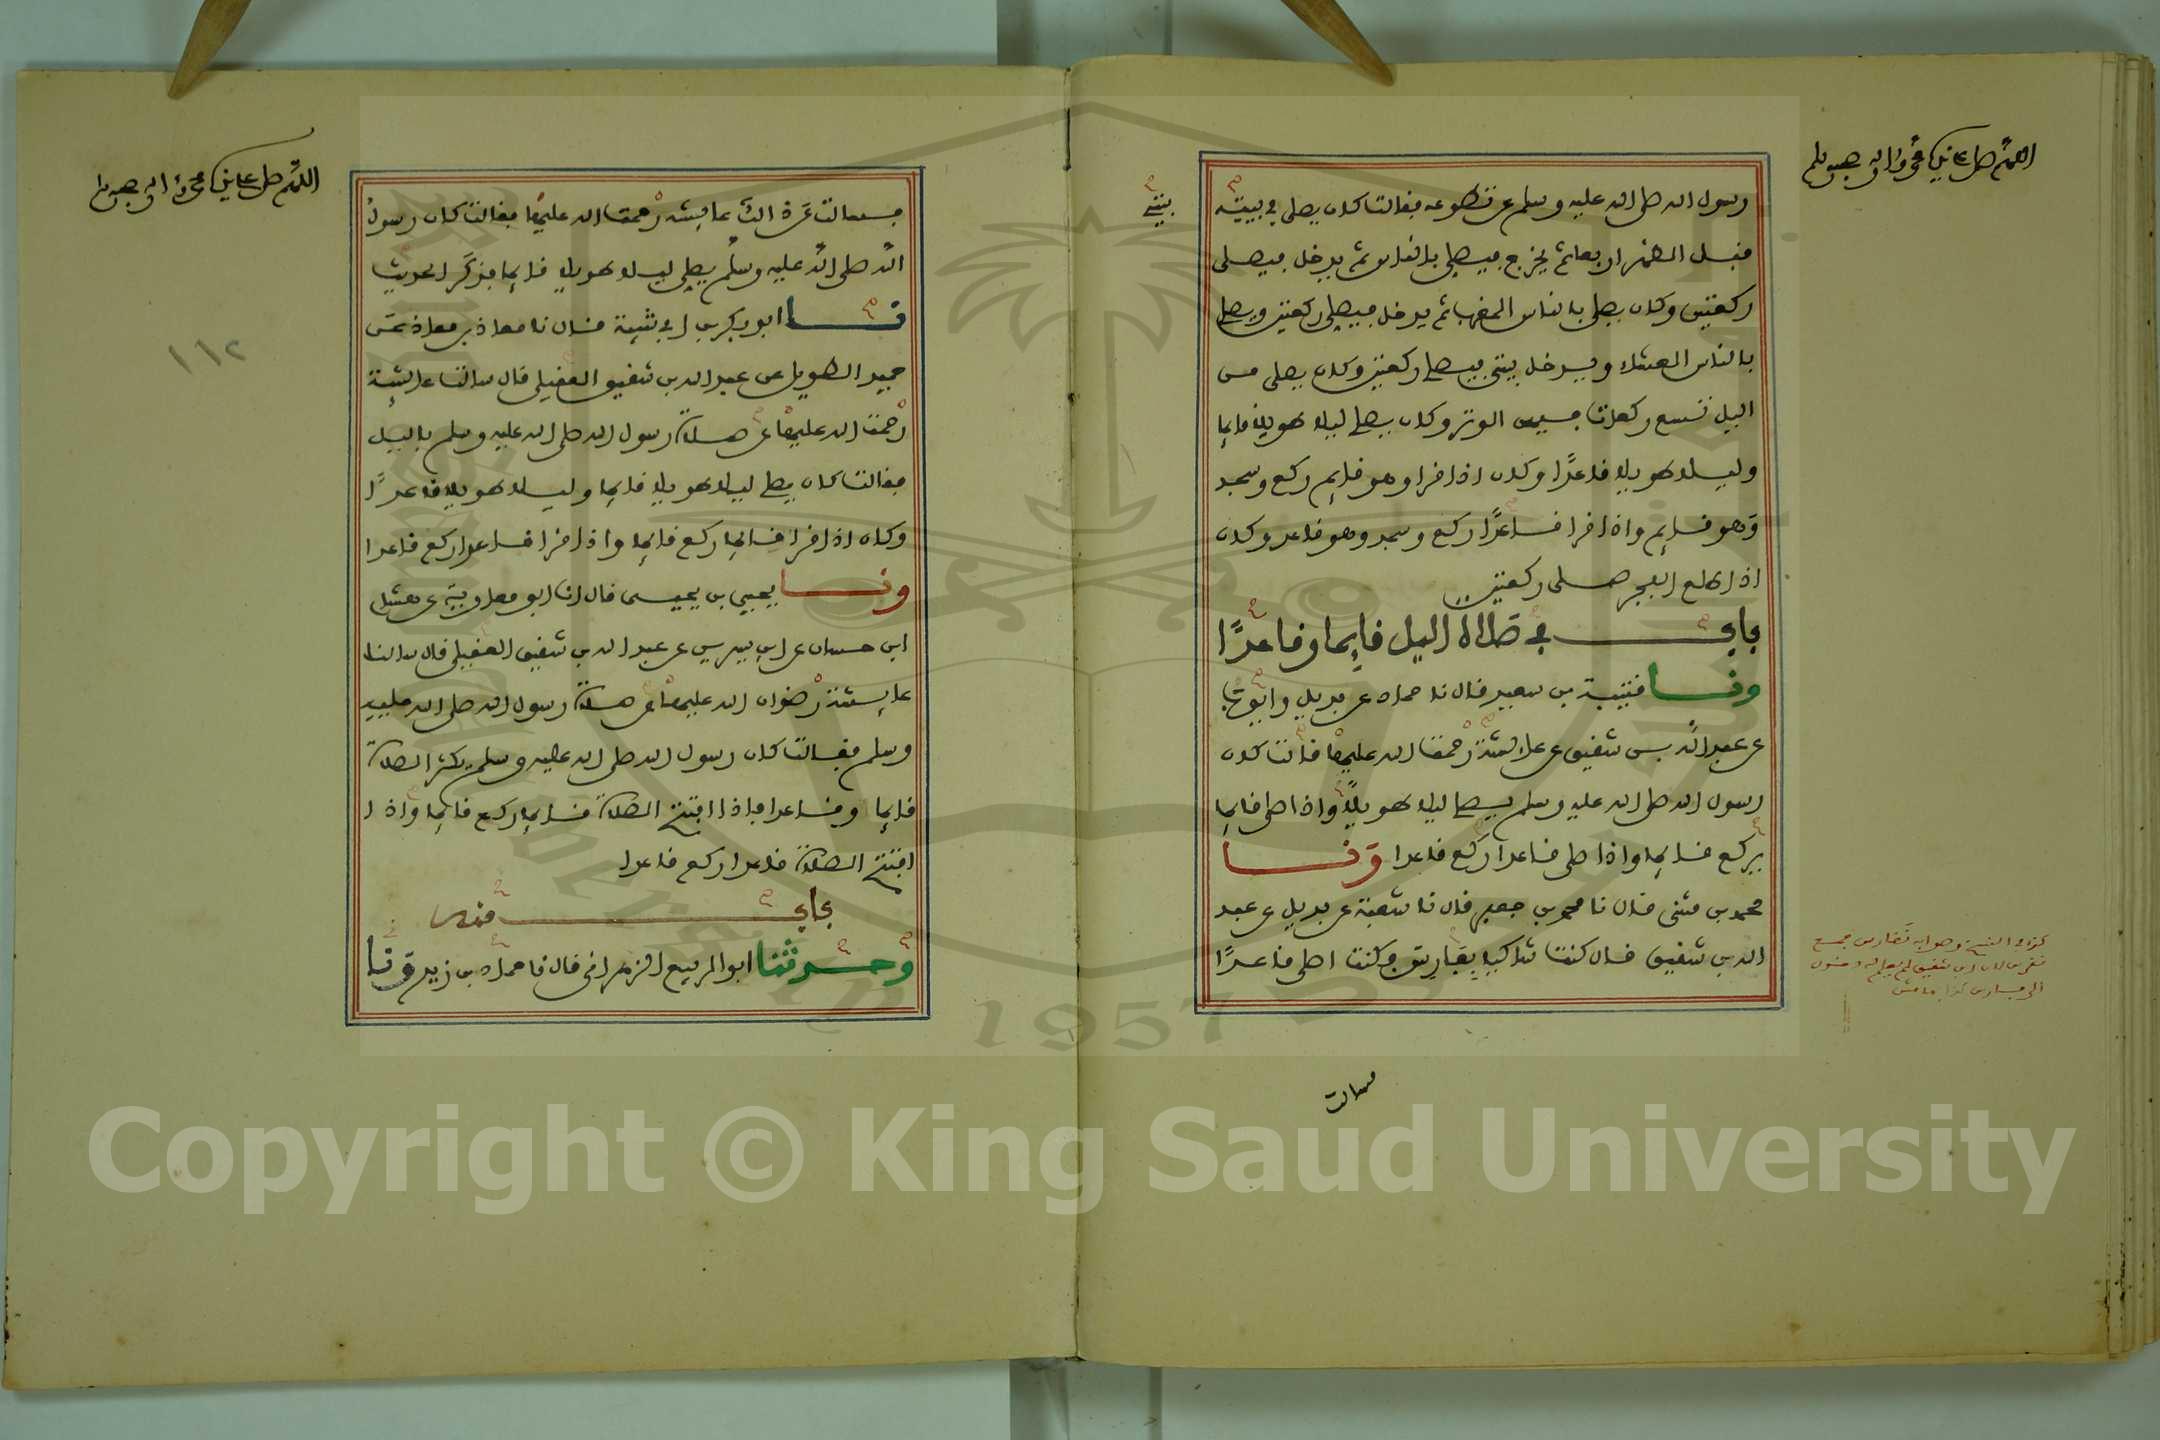 اللهم صل على نبينا محمد وءاله وصحبه وسلم
رسول الله صلى الله عليه وسلم عن تطوعه فقالت كان يصلى في بيته
بيتي
قبل الظهر اربعا ثم يخرج فيصلي بالناس ثم يدخل فيصلى
ركعتين وكان يصلى بالناس المغرب ثم يدخل فيصلي ركعتين ويصلي
بالناس العشاء ويدخل بيتي فيصلي ركعتين وكان يصلى من
اليل تسع ركعات فيهن الوتر وكان يصلي ليلا طويلا قايما
وليلا طويلا قاعدًا وكان اذا قرا وهو قايم ركع وسجد
وهو قايم واذا قرا قاعدًا ركع وسجد وهو قاعد وكان
اذا طلع الفجر صلى ركعتين
باب في صلاة اليل قايما وقاعدًا
ونا قتيبة بن سعيد قال نا حماد عن بديل وايوب
عن عبد الله بن شقيق عن عايشة رحمت الله عليها قالت كان
رسول الله صلى الله عليه وسلم يصلي ليلا طويلًا واذا صلى قايما
يركع قايما واذا صلى قاعدا ركع قاعدا ونا
محمد بن مثنى قال نا محمد بن جعفر قال نا شعبة عن بديل عن عبد
الله بن شقيق قال كنت شاكيا بفارس وكنت اصلى قاعدًا
فسالت
اللهم صل على نبينا محمد وءاله وصحبه وسلم
فسالت عن ذلك عايشه رحمت الله عليها فقالت كان رسول
الله صلى الله عليه وسلم يصلي ليلا طويلا قايما فذكر الحديث
نا ابو بكر بن ابي شيبة قال نا معاذ بن معاذ عن
حميد الطويل عن عبد الله بن شقيق العقيلي قال سالت عايشة
رحمت الله عليها عن صلاة رسول الله صلى الله عليه وسلم باليل
فقالت كان يصلي ليلا طويلا قايما وليلا طويلا قاعدًا
وكان اذا قرا قايما ركع قايما واذا قرا قاعدا ركع قاعدا
ونا يحيى بن يحيى قال انا ابو معاوية عن هشام
ابن حسان عن ابن سيرين عن عبد الله بن شقيق العقيلي قال سالنا
عايشة رضوان الله عليها عن صلاة رسول الله صلى الله عليه
وسلم فقالت كان رسول الله صلى الله عليه وسلم يكثر الصلاة
قايما وقاعدا فاذا افتتح الصلاة قايما ركع قايما واذا
افتتح الصلاة قاعدا ركع قاعدا
باب منه
وحدثنا ابو الربيع الزهراني قال نا حماد بن زيد ونا
١١٢
1957
Copyright © King Saud University